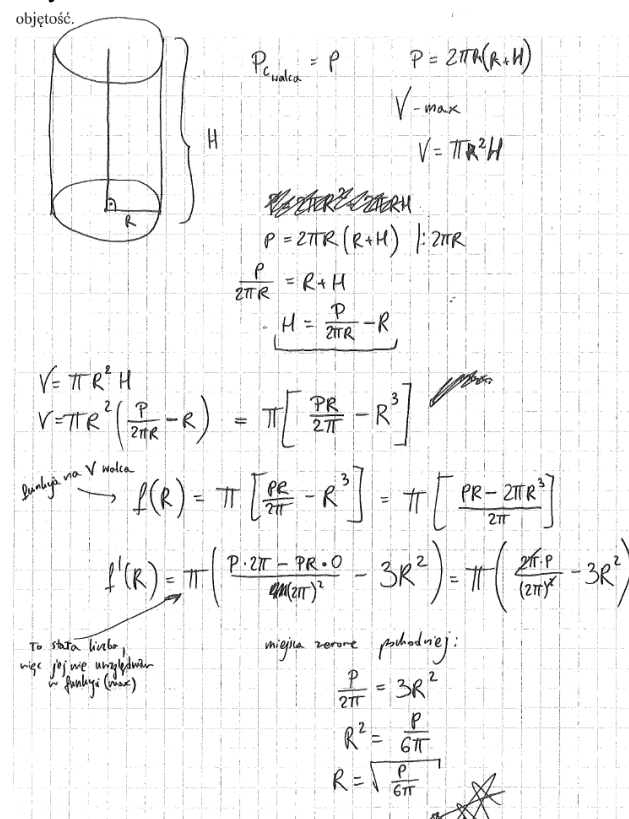 objętość.
P_c walca = P    P = 2πR(R+H)
V - max
V = πR²H
H
R
P = 2πR(R+H) |:2πR
P/2πR = R+H
H = P/2πR - R
V = πR² H
V = πR² (P/2πR - R) = π[PR/2π - R³]
funkcja na V walca
f(R) = π[PR/2π - R³] = π[PR - 2πR³/2π]
f'(R) = π(P·2π - PR·0/(2π)² - 3R²) = π(2π·P/(2π)² - 3R²)
To stała liczba,
więc jej nie uwzględniam
w funkcji (max)
miejsca zerowe pochodniej:
P/2π = 3R²
R² = P/6π
R = √(P/6π)